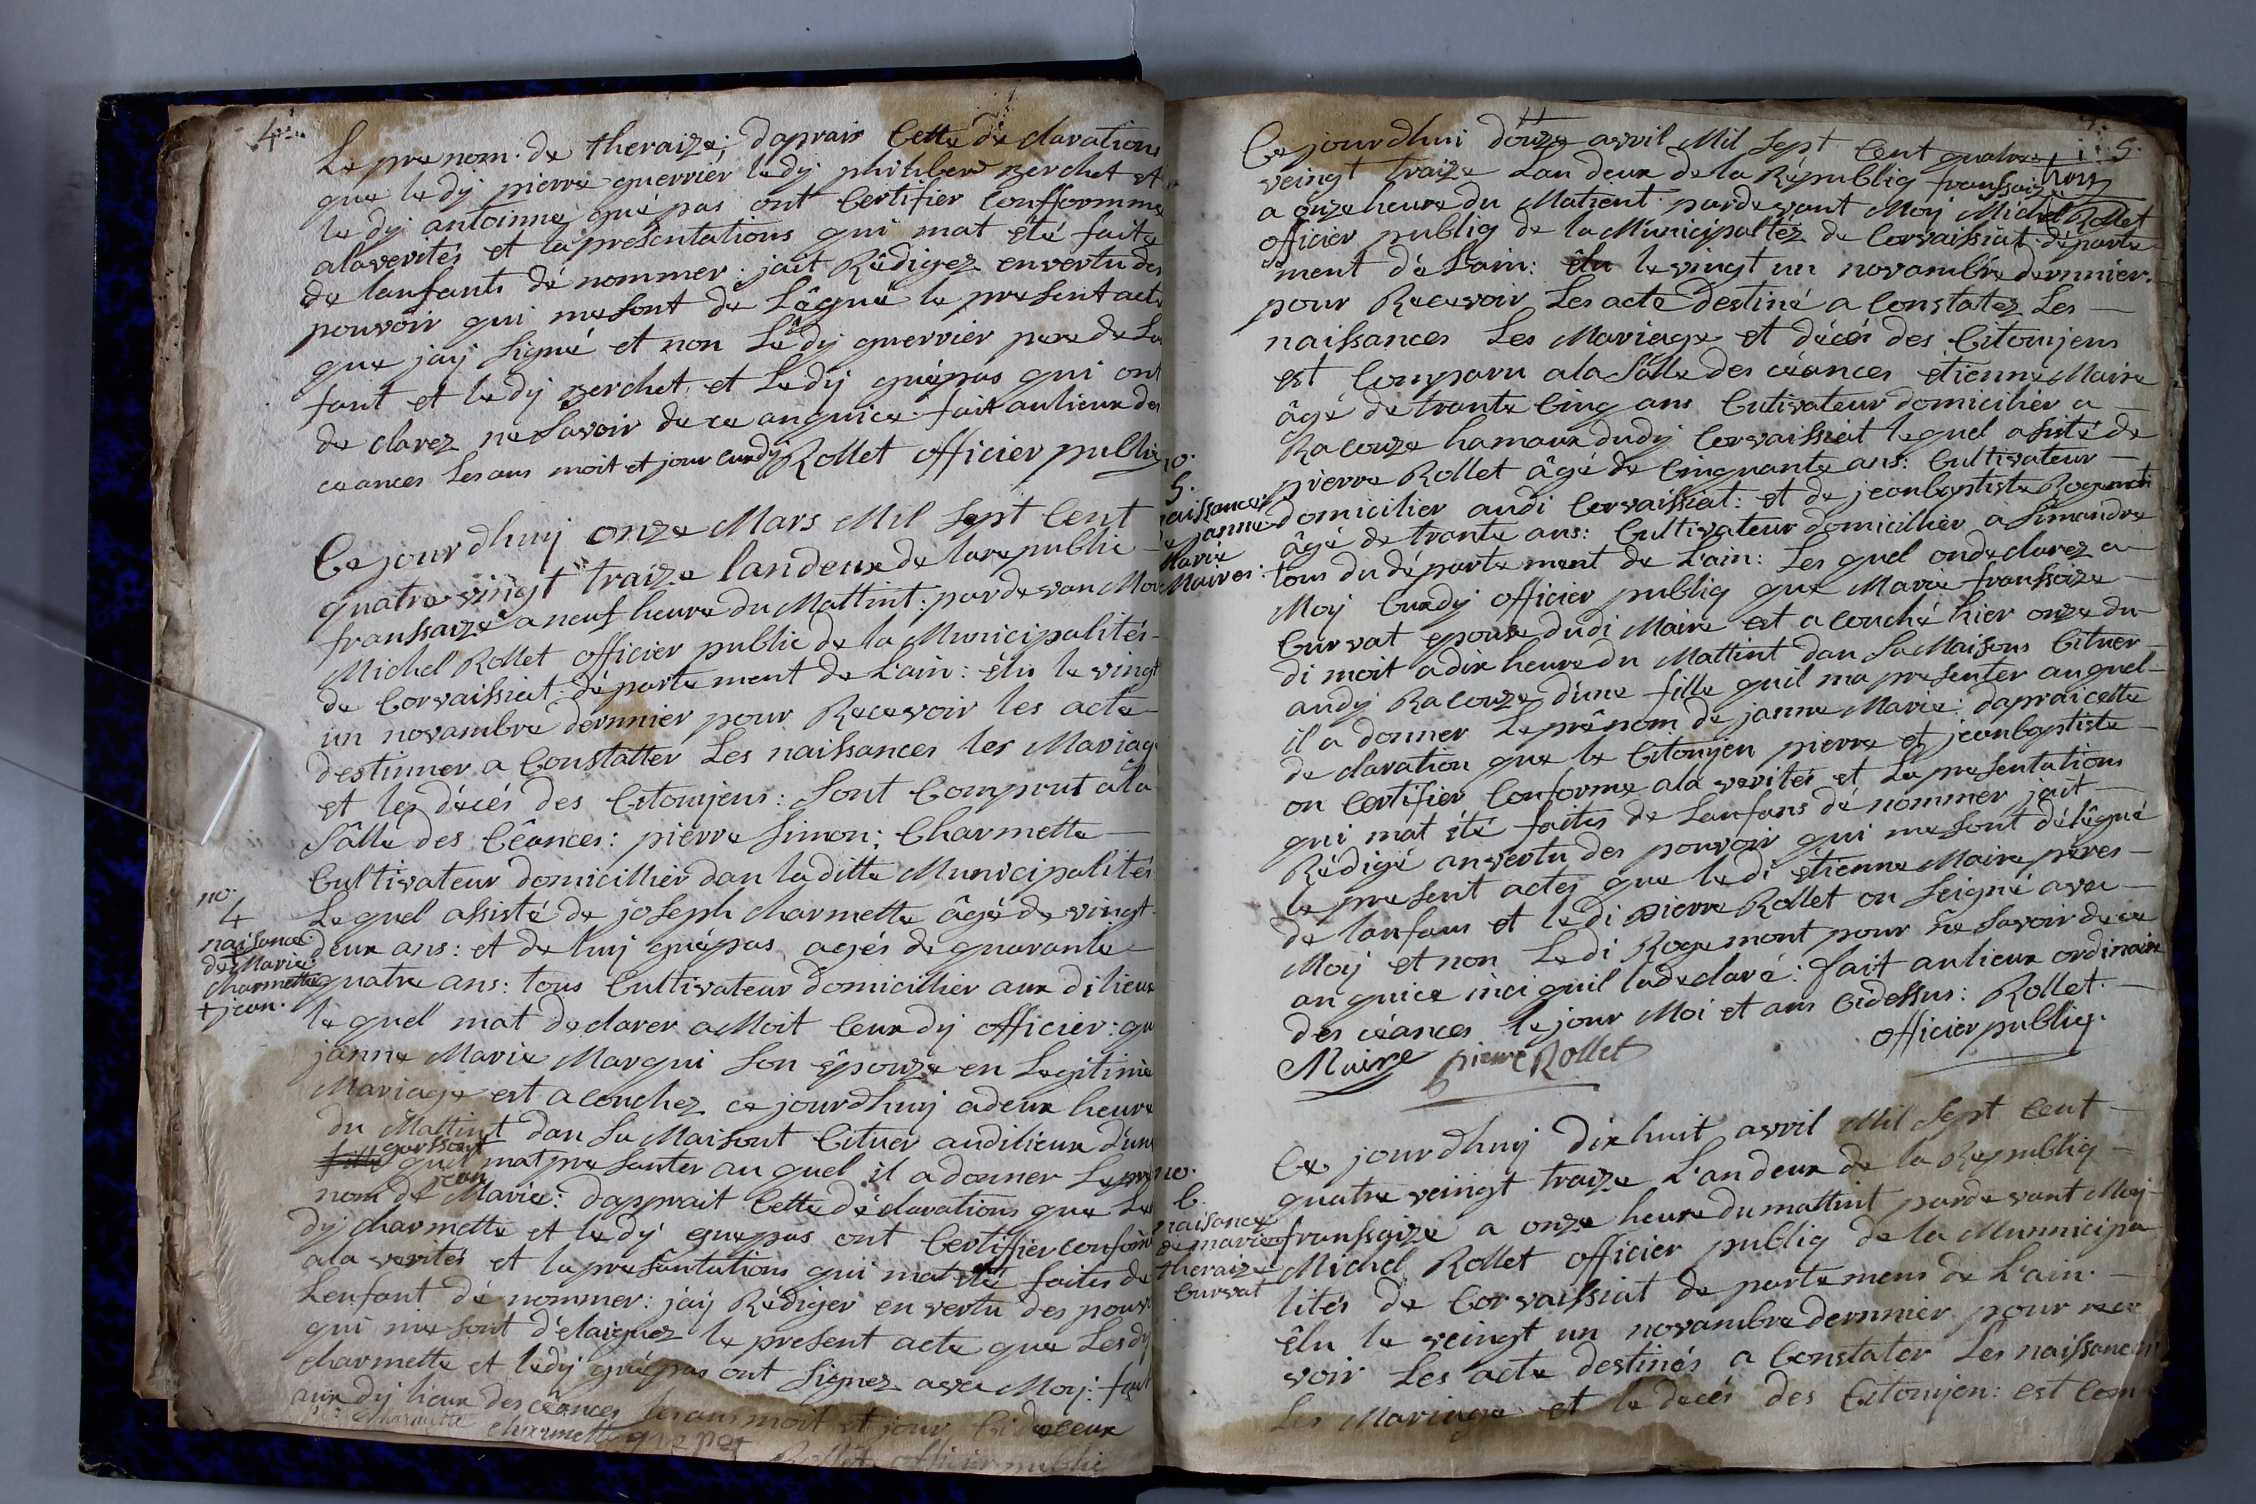 4
Le prenom de theraize; daprair Cette de clarations
que le dy pierre guerrier le dy philiber zerchet et
le dy antoinne guépas ont Certifier Confforme
ala verités et la presentations qui mat été faite
de lanfants dé nommer: jait Rêdigez en vertu des
pouvoir qui me sont de Lâgué le present acte
que jaij Signé et non Le dy guerrier pere de Lan
fant et le dy zerchet et Le dij guépas qui ont
de clarez ne Savoir de ce anquice: fait au lieux des
ceances Les ans moit et jour cundy Rollet officier public
Ce jour dhuij onze Mars Mil Sept Cent
quatre vingt traize lan deux de la republic
franssaize a neuf heure du Mattint: pardevan Moi
Michel Rollet officier public de la Municipalités
de Corvaissiat: département de L'ain: élu le vingt
un novambre dernnier pour Recevoir les acte
destinner a Constatter Les naissances les Mariage
et les décés des Citoiyens: Sont Comparut ala
Sâlle des Cêances: pierre Simon; Charmette
Cultivateur domicillier dan laditte Municipalités
no.
4
naisance
de Marie
charmette
+ jean.
Le quel assisté de joseph charmette âgé de vingt
deux ans: et de luy guépas agés de quarante
quatre ans: tous Cultivateur domicillier aux di lieux
le quel mat declarer a Moit Ceux dy officier: que
janne Marie Marqui Son êpouze en Legitime
Mariage est acouchez ce jourdhuij a deux heure
du Mattint dan Sa Maisont Cituer audilieux d'une
garssont
fille quil mat presanter au quel il a donner Le pre
jean
nom de Marie: dapprait Cette dé clarations que Le
dy charmette et le dy guepas ont Certiffier conforme
ala verités et la presantations qui mat été faites de
Lenfant dé nommer: jaij Rédiger en vertu des pouv
qui me sont d'élaiguez le present acte que Les dy
charmette et le dy guépas ont Signez avec Moy: fait
aux dy lieux des céances les ans moit et jour Ci deceux
charmette charmette guepas
Rollet officier public
5.
Ce jourdhui douze avril Mil Sept Cent quatre
veingt traize L'an deux de la Républiq franssaize
a onze heure du Matient: pardevant Moy Michel Rollet
officier publiq de la Municipaltéz de Corvaissiat: départe
ment dé L'ain: élu le vingt un novambre dernnier
pour Recevoir Les acte destiné a Constatez Les
naissances Les Mariage et décés des Citoiyens
est Comparu ala Sâlle des céances étienne Maire
âgé de trante Cinq ans Cutivateur domicilier a
Racouze hamaux dudy Corvaissiat lequel assisté de
no.
5.
naissances
de janne
Marie
Maires:
pierre Rollet âgé de Cinquante ans: Cultivateur
domicilier audi Corvaissiat: et de jeanbaptiste Rogemont
âgé de trante ans: Cultivateur domicillier a Simandre
tous du département de L'ain: Les quel on declarez a
Moy Cundy officier publiq que Marie franssoize
Curvat epouse dudi Maire est acouché hier onze du
di moit a dix heure du Mattint dan Sa Maisons Cituer
audy Racouze d'une fille quil ma presenter auquel
il a donner Le prénom de janne Marie: daprai cette
de claration que le Citoiyen pierre et jeanbaptiste
on Certifier Conforme ala verités et La presentations
qui mat été faites de Lanfans dé nommer jait
Rédigé anvertu des pouvoir qui me sont délégué
le present actes que le di étienne Maire peres
de lanfans et le di pierre Rollet on Seigné avec
Moy et non Le di Rogemont pour ne savoir de ce
anquice inci quil la declaré: fait au lieux ordinaire
des céances le jour Moi et ans Cidessus: Rollet.
officier publiq.
Maire pierre Rollet
Ce jourdhuij Dixhuit avril Mil Sept Cent
quatre veingt traize L'an deux de la Republiq
no.
6.
naisance
de marie
theraize
Curvat
franssaize a onze heure du mattint parde vant Moy
Michel Rollet officier publiq de la Munnicipa
lités de Corvaissiat de partemens de L'ain.
êlu le veingt un novambre dernnier pour rece
voir Les acte destinés a Constater Les naissances
Les Mariage et le decés des Citoiyen: est Com